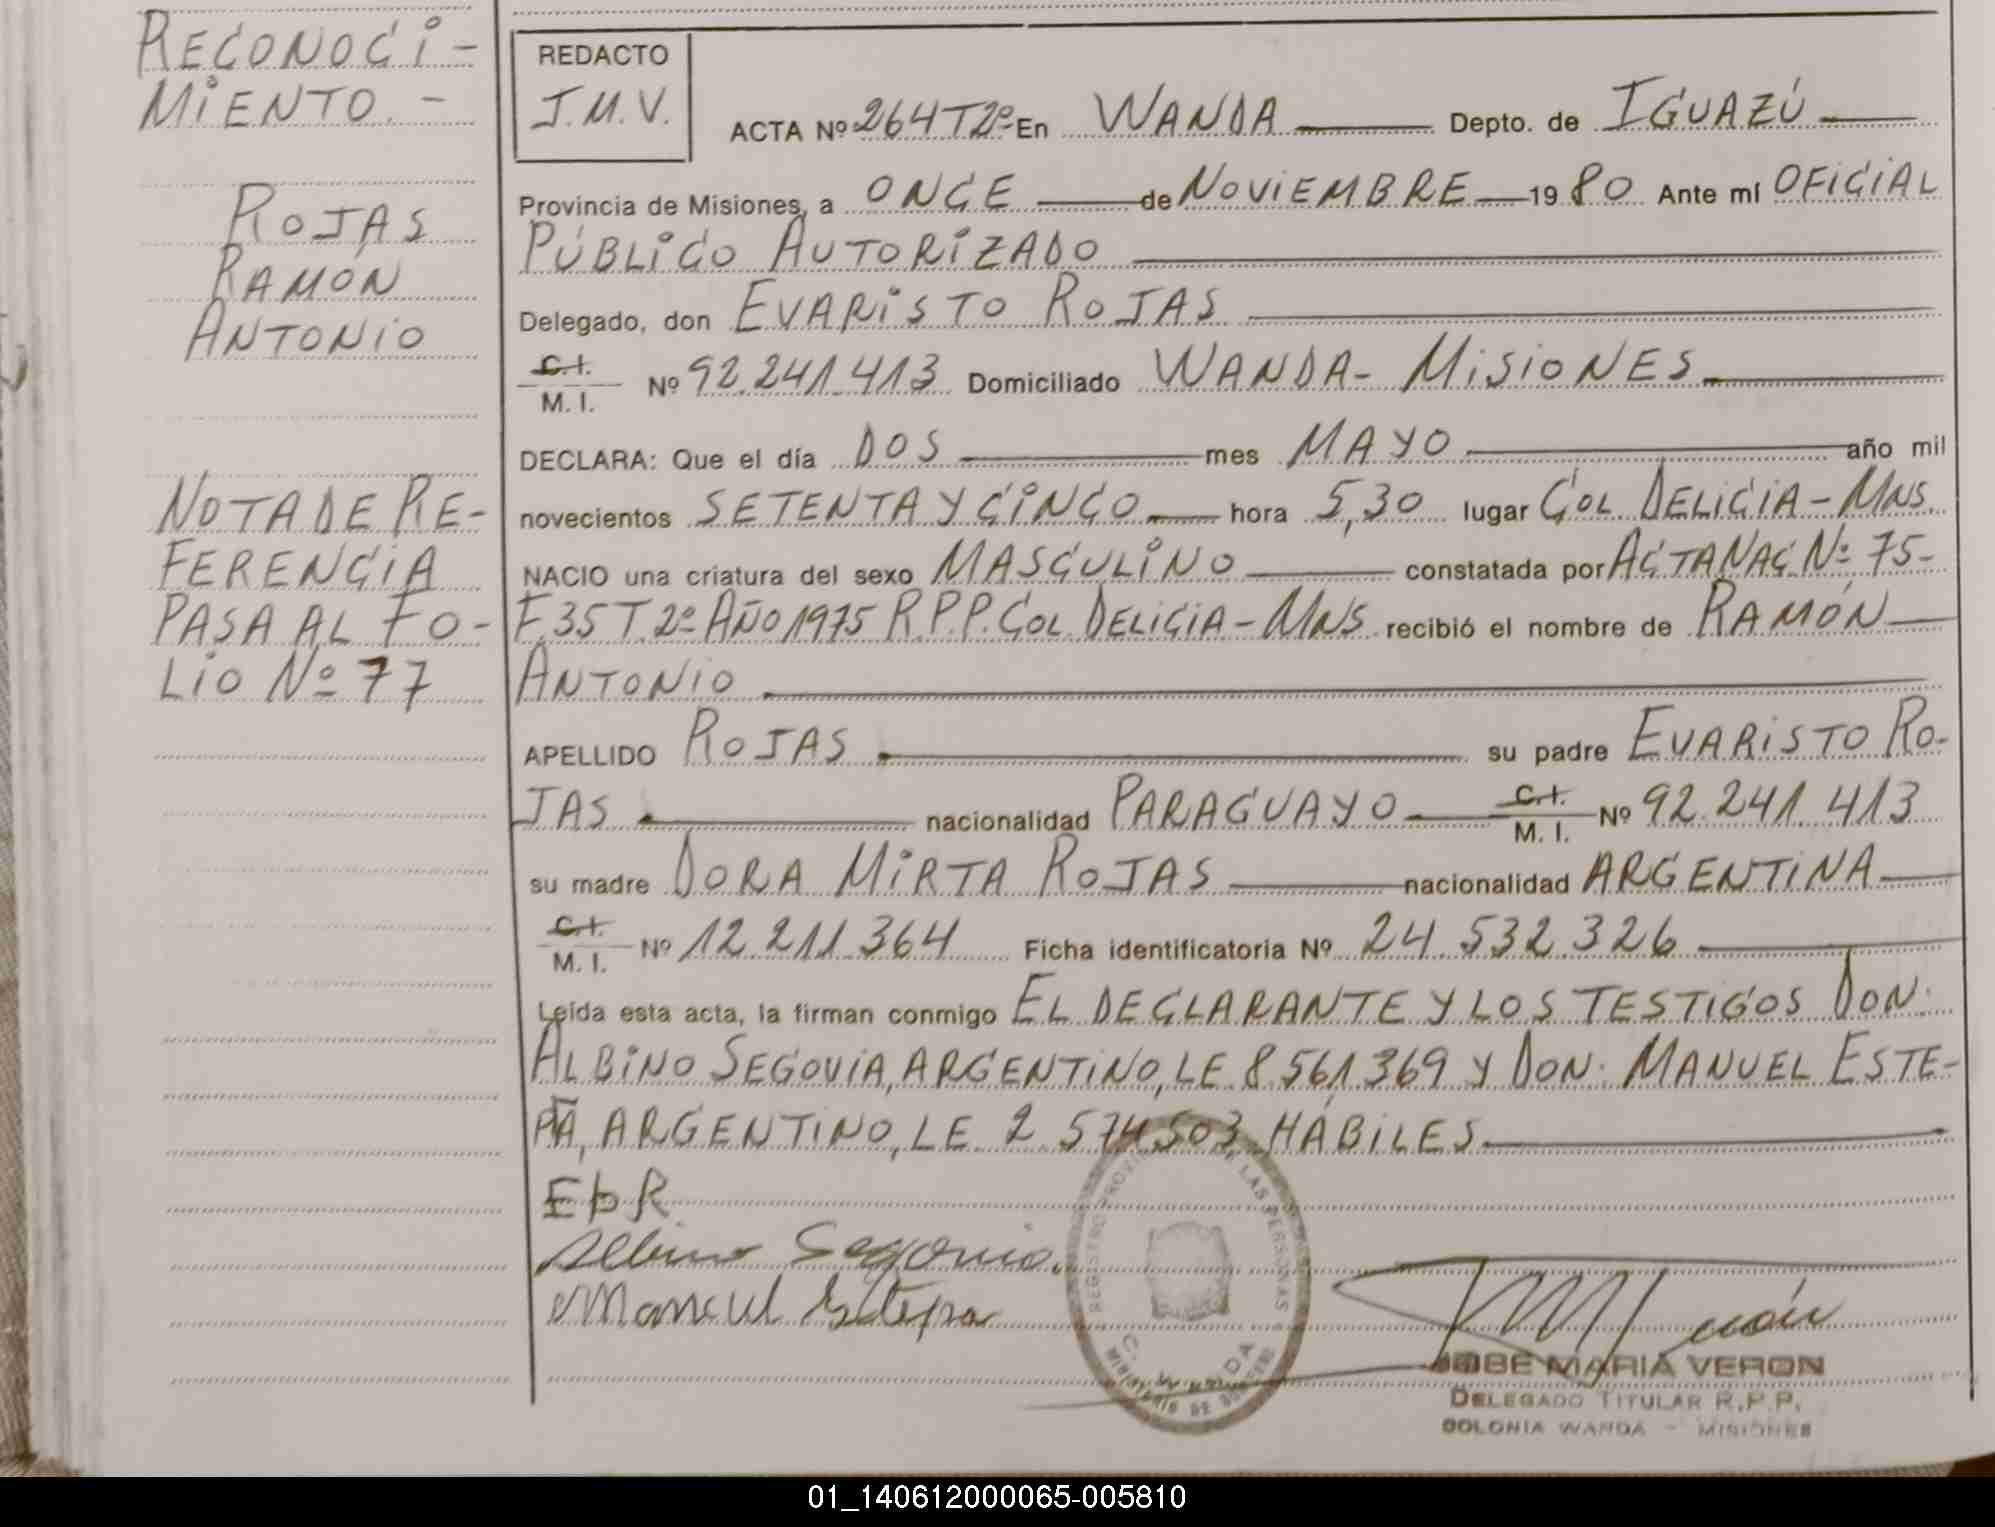 RECONOCI-
MIENTO.-
ROJAS
RAMÓN
ANTONIO
NOTA DE RE-
FERENCIA
PASA AL FO-
LIO Nº 77
REDACTO
J.M.V.
ACTA Nº 264 T 2º En WANDA Depto. de IGUAZÚ
Provincia de Misiones, a ONCE de NOVIEMBRE 1980 Ante mí OFICIAL
PÚBLICO AUTORIZADO
Delegado, don EVARISTO ROJAS
C.I.
M. I. Nº 92.241.413 Domiciliado WANDA- MISIONES
DECLARA: Que el día DOS mes MAYO año mil
novecientos SETENTA Y CINCO hora 5,30 lugar COL. DELICIA-MNS.
NACIO una criatura del sexo MASCULINO constatada por ACTA NAC. Nº 75-
F.35 T.2º AÑO 1975 R.P.P. COL. DELICIA-MNS recibió el nombre de RAMÓN
ANTONIO
APELLIDO ROJAS su padre EVARISTO RO-
JAS nacionalidad PARAGUAYO C.I.
M. I. Nº 92.241.413
su madre DORA MIRTA ROJAS nacionalidad ARGENTINA
C.I.
M. I. Nº 12.211.364 Ficha identificatoria Nº 24.532.326
Leída esta acta, la firman conmigo EL DECLARANTE Y LOS TESTIGOS DON.
ALBINO SEGOVIA, ARGENTINO, LE 8.561.369 Y DON. MANUEL ESTE-
PA, ARGENTINO, LE 2.574.503, HÁBILES
Albino Segovia.
Manuel Estepa
REGISTRO PROVINCIAL DE LAS PERSONAS
C. WANDA
MINISTERIO DE GOBIERNO
JOSE MARIA VERON
DELEGADO TITULAR R.P.P.
COLONIA WANDA - MISIONES
01_140612000065-005810